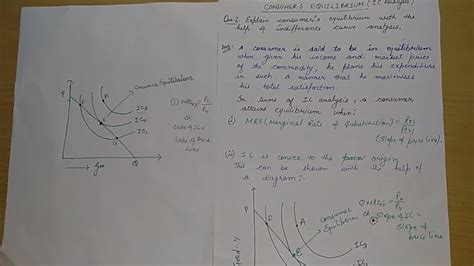 CONSUMER'S EQUILIBRIUM (IC Analysis)
Ques 2. Explain consumer's equilibrium with the
help of indifference curve analysis.
Ans. A consumer is said to be in equilibrium
when given his income and market price
of the commodity, he plans his expenditure
in such a manner that he maximises
his total satisfaction.
In terms of IC analysis, a consumer
attains equilibrium when:
(i) MRS (Marginal Rate of Substitution) = Px/Py
(Slope of price line).
(ii) IC is convex to the origin
This can be shown with the help of
a diagram:-
① MRSxy = Px/Py
or
Slope of IC =
Slope of
price line
Consumer
Equilibrium
P
F
A
E
IC3
IC2
Consumer Equilibrium
① MRSxy = Px/Py
or
Slope of IC =
Slope of Price
Line
P
E
G
IC3
IC2
IC1
O
Q